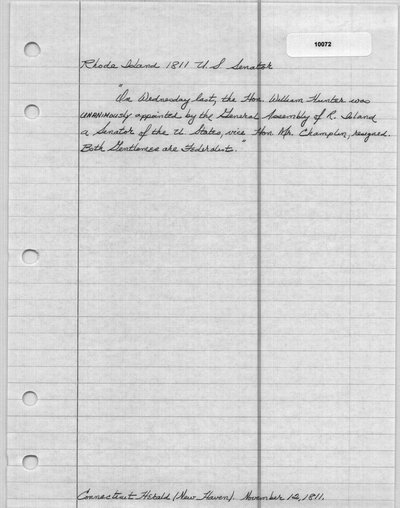 10072
Rhode Island 1811 U S Senator
"On Wednesday last, the Hon. William Hunter was
unanimously appointed by the General Assembly of R. Island
a Senator of the U. States, vice Hon. Mr. Champlin, resigned.
Both Gentlemen are Federalist."
Connecticut Herald (New Haven). November 12, 1811.